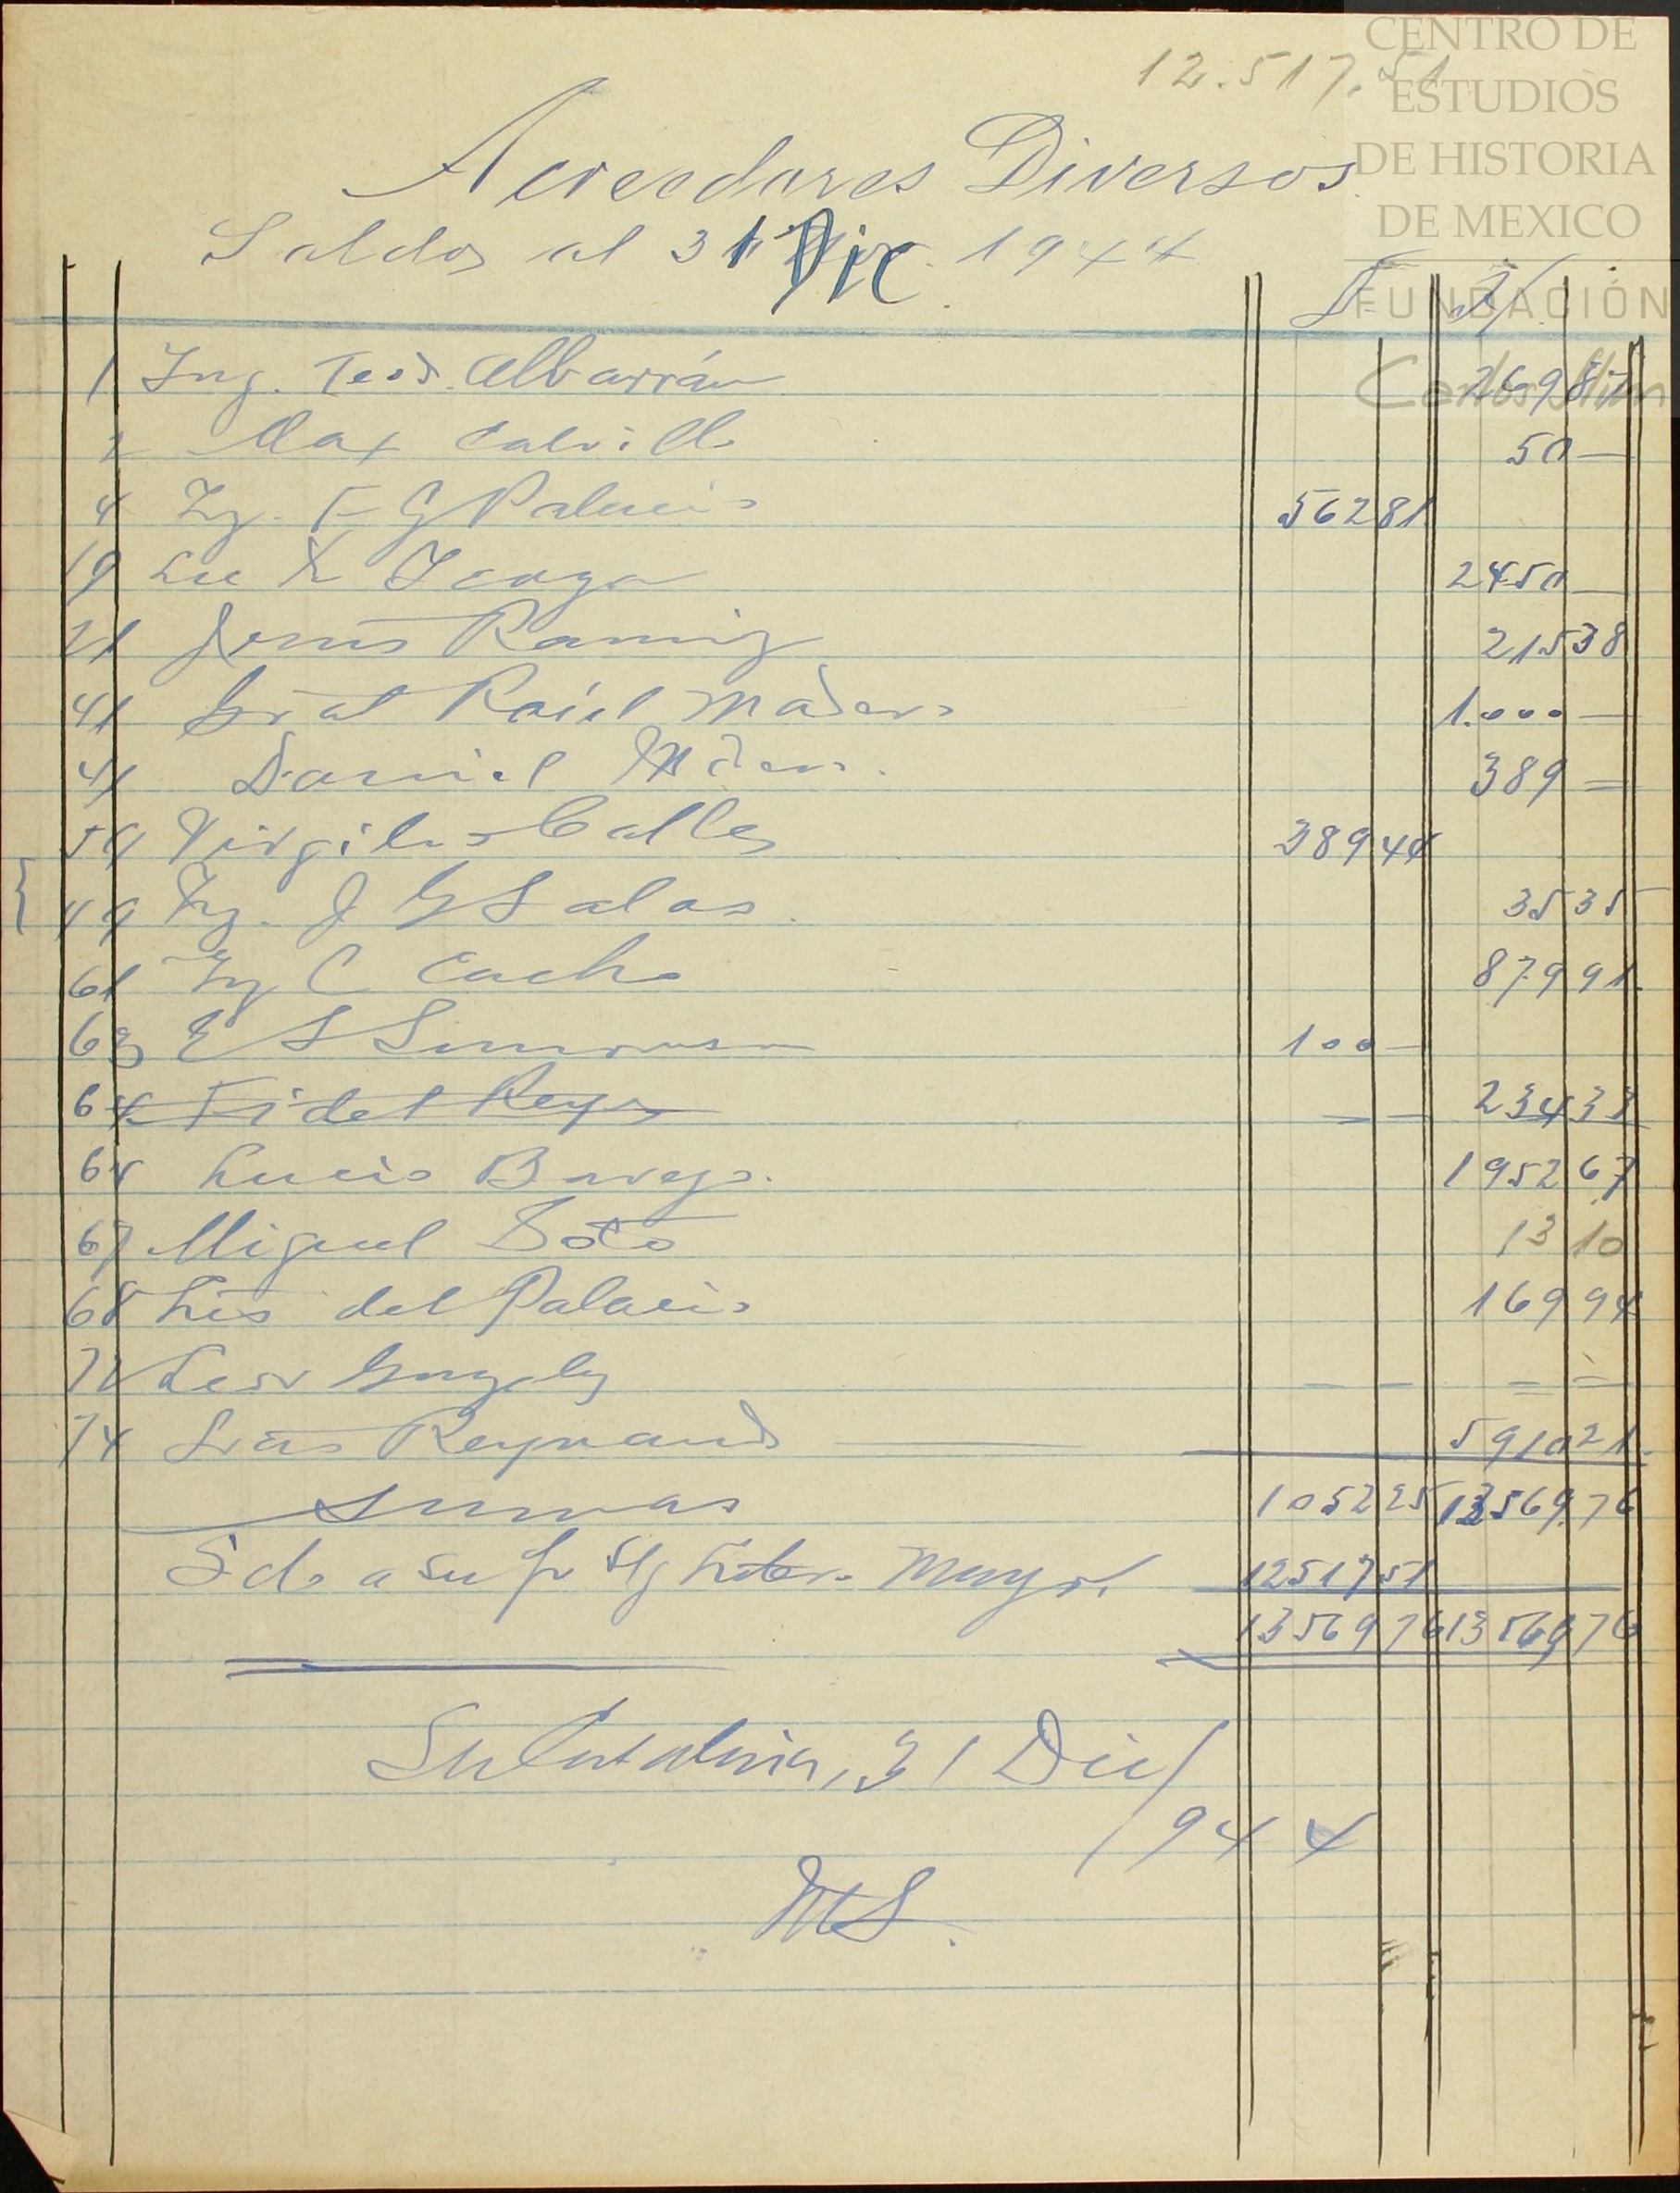 CENTRO DE
ESTUDIOS
DE HISTORIA
DE MEXICO
FUNDACIÓN
Carlos Slim
12.517.51
Acreedores Diversos
Saldos al 31 Dic. 1944
1 Ing. Teod. Albarrán 269 87
2 Max Calvillo 50 —
4 Ig. F G Palacio 562 81
19 Lic 2450 —
21 Jesús Ramirz 215 38
41 Gral Raúl Madero 1.000 —
41 Daniel 389 =
59 Virgilio Calles 389 44
49 Ig. J G Salas. 35 35
61 Ig C Cacho 879 91
63 E S 100 —
64 Fidel Reyes — — 234 33
65 Lucio Borrego. 1952 67
67 Miguel Soto 13 10
68 Luis del Palacio 169 94
72 Leor Gonzalez — — = =
74 Reynaud 5910 21
Sumas 1052 25 13569.76
Sdo a su fr Mayor 12517 51
13569 76 13569 76
Sta Catalina, 31 Dic/
1944
MS.